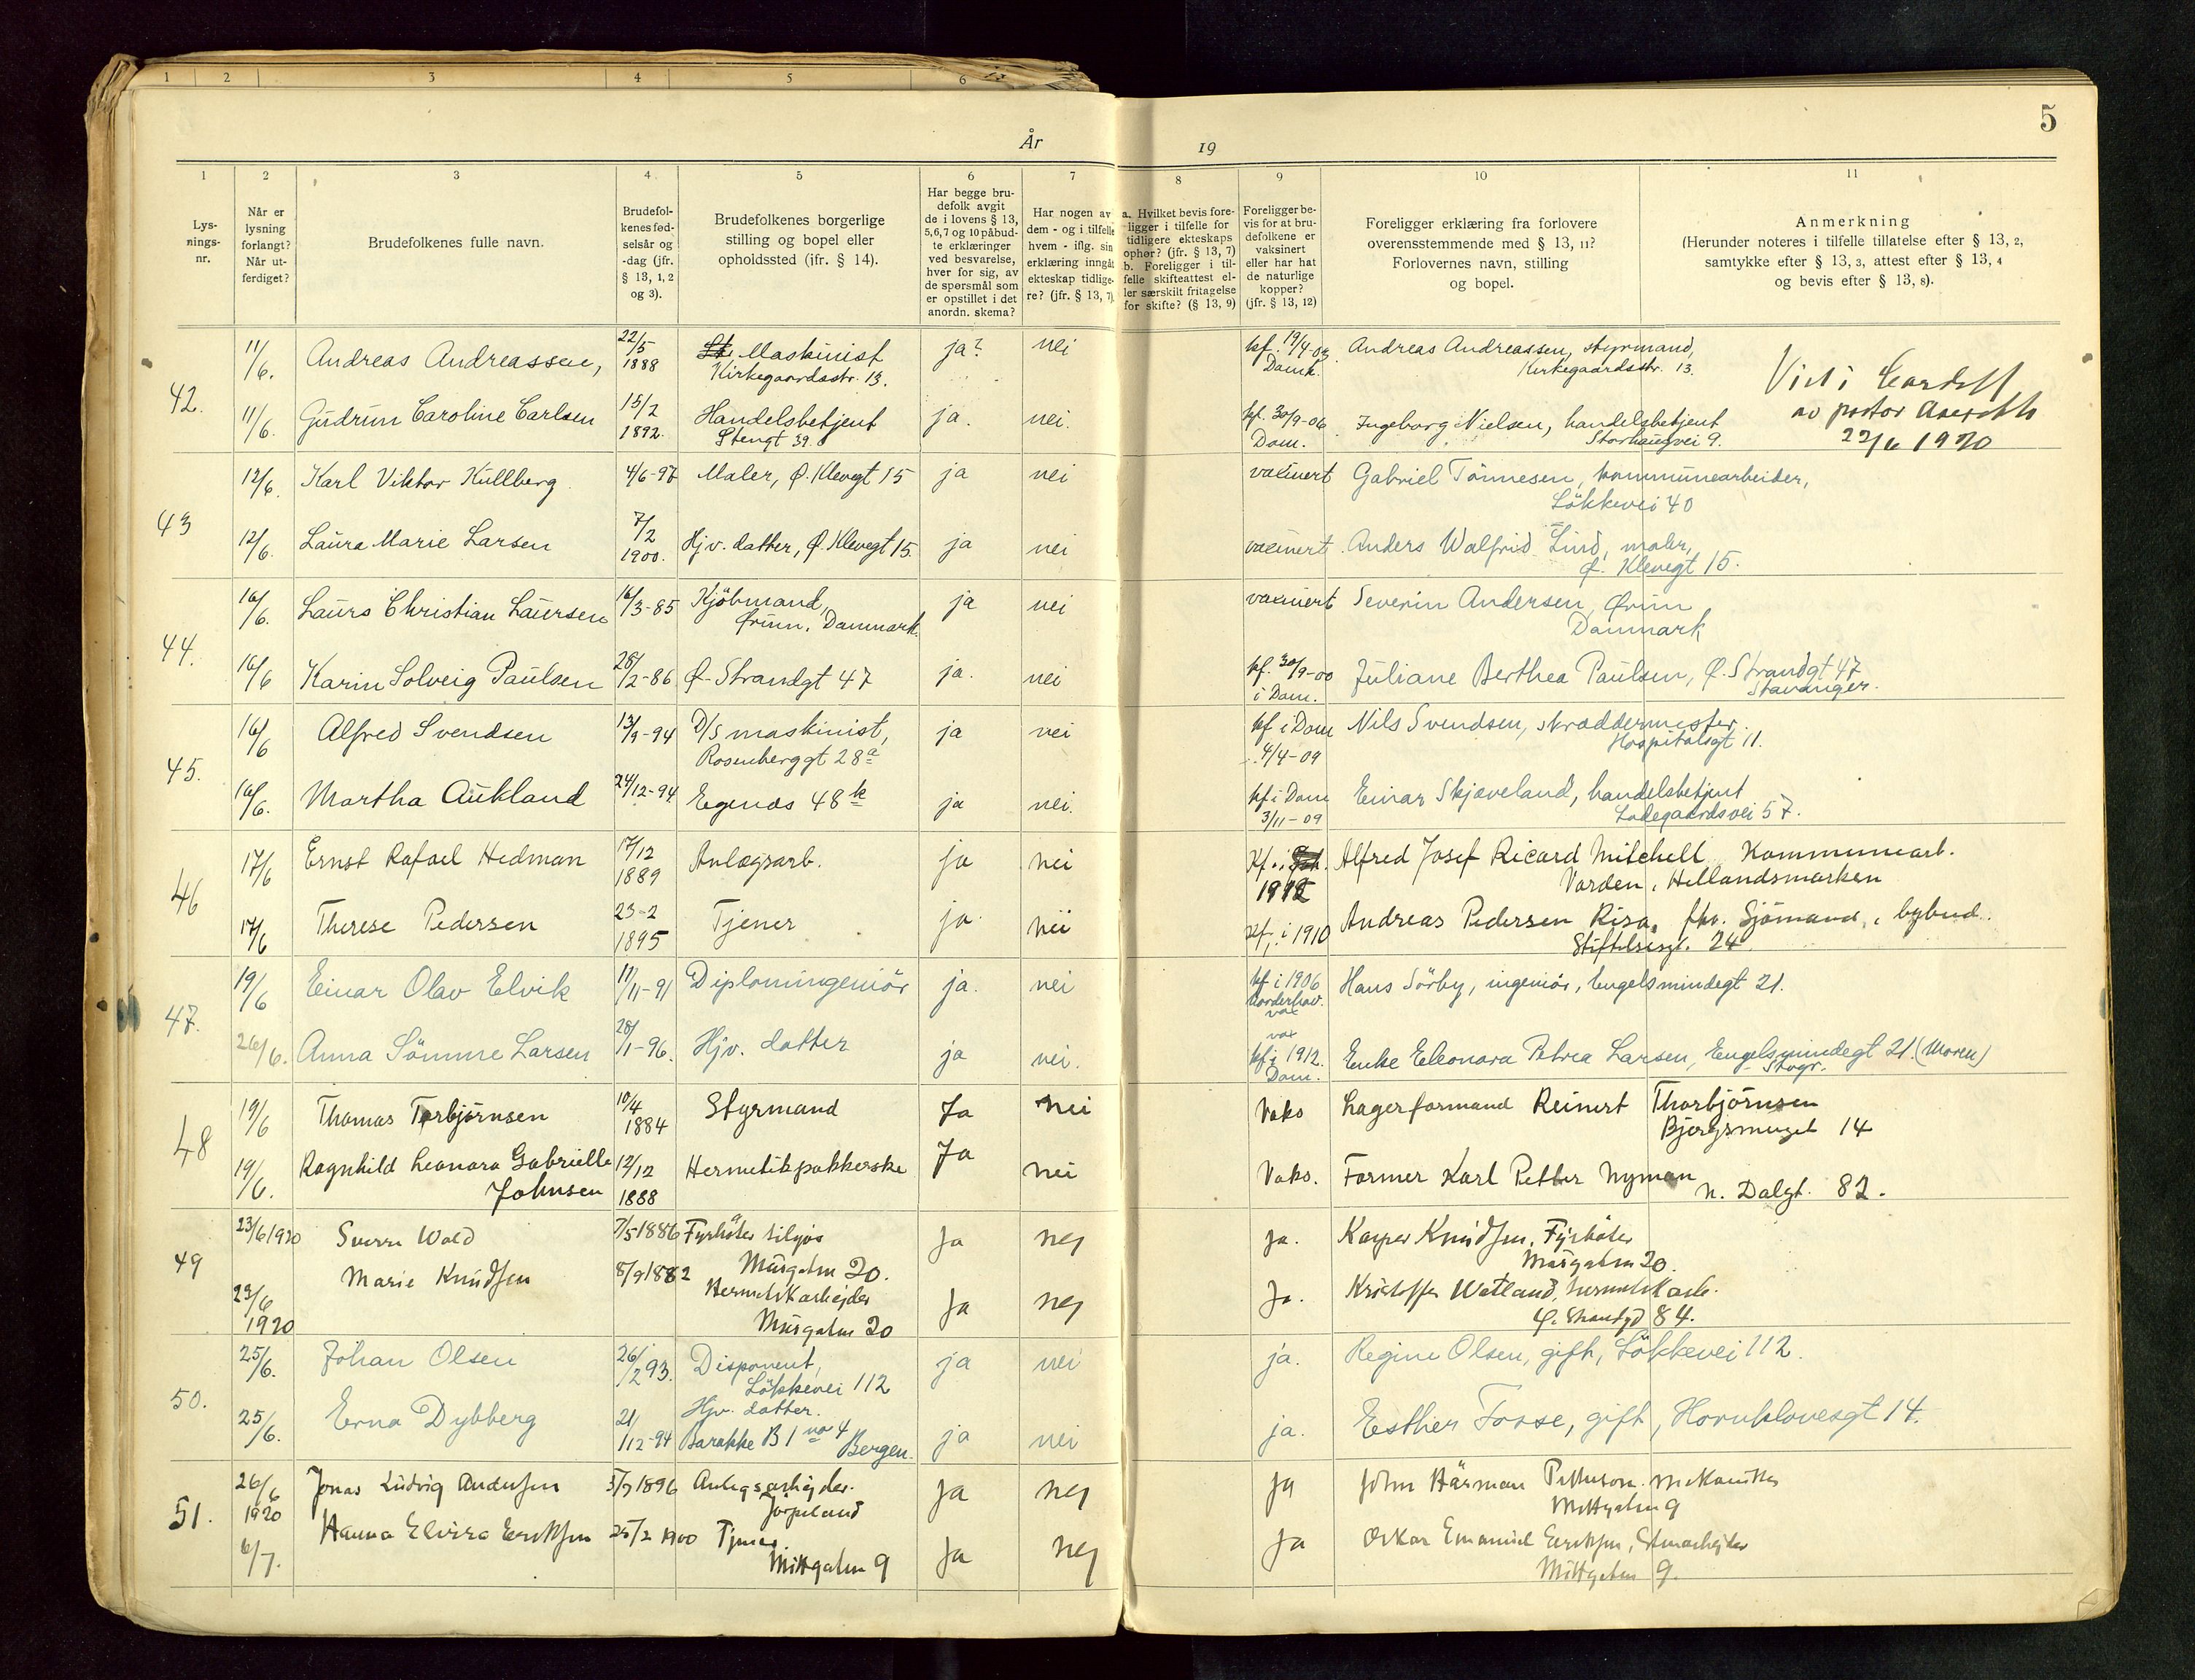 1 2 3 4 5 6
År 19
5
1 2 3 4 5 6 7 8 9 10 11
Lys-
nings-
nr.
Når er
lysning
forlangt?
Når ut-
ferdiget?
Brudefolkenes fulle navn.
Brudefol-
kenes fød-
selsår og
-dag (jfr.
§ 13, 1, 2
og 3).
Brudefolkenes borgerlige
stilling og bopel eller
opholdssted (jfr. § 14).
Har begge bru-
defolk avgit
de i lovens § 13,
5, 6, 7 og 10 påbud-
te erklæringer
ved besvarelse,
hver for sig, av
de spørsmål som
er opstillet i det
anordn. skema?
Har nogen av
dem - og i tilfelle
hvem - iflg. sin
erklæring inngåt
ekteskap tidlige-
re? (jfr. § 13, 7)
a. Hvilket bevis fore-
ligger i tilfelle for
tidligere ekteskaps
ophør? (jfr. § 13, 7)
b. Foreligger i til-
felle skifteattest el-
ler særskilt fritagelse
for skifte? (§ 13, 9)
Foreligger be-
vis for at bru-
defolkene er
vaksinert
eller har hat
de naturlige
kopper?
(jfr. § 13, 12)
Foreligger erklæring fra forlovere
overensstemmende med § 13, 11?
Forlovernes navn, stilling
og bopel.
Anmerkning
(Herunder noteres i tilfelle tillatelse efter § 13, 2,
samtykke efter § 13, 3, attest efter § 13, 4
og bevis efter § 13, 8).
42.
11/6. Andreas Andreassen, 22/5 1888 Maskinist ja? nei kf. 19/4-03 Andreas Andreassen, styrmand,
Kirkegaardsstr. 13. Domk. Kirkegaardsstr. 13.
11/6. Gudrun Caroline Carlsen 15/2 1892. Handelsbetjent ja. nei. kf. 30/9-06 Ingeborg Nielsen, handelsbetjent
Stengt 39 Dom. Storhaugvei 9.
Viet i
av pastor
22/6 1920
43
12/6. Karl Viktor Kullberg 4/6-97 Maler, Ø. Klevegt 15 ja nei vaxinert Gabriel Tönnesen, kommunearbeider,
Lökkevei 40
12/6. Laura Marie Larsen 7/2 1900. Hjv. datter, Ø. Klevegt 15 ja nei vaxinert. Anders Walfrid Lind, maler,
Ø. Klevegt 15.
44.
16/6. Laurs Christian Laursen 16/3-85 Kjöbmand, ja nei vaxinert Severin Andersen, Ørum
Ørum, Danmark. Danmark
16/6 Karin Solveig Paulsen 28/2-86 Ø. Strandgt 47 ja. nei kf. 30/9-00 Juliane Berthea Paulsen, Ø. Strandgt 47
i Dom. Stavanger.
45.
16/6 Alfred Svendsen 13/9-94 D/S maskinist, ja nei kf i Dom Nils Svendsen, skræddermester.
Rosenberggt 28a 4/4-09 Hospitalsgt 11.
16/6. Martha Aukland 24/12-94 Egenæs 48k ja nei. kf i Dom Einar Skjæveland, handelsbetjent
3/11-09 Ladegaardsvei 57.
46
17/6 Ernst Rafael Hedman 17/12 1889 Anlægsarb. ja nei Kf. i Alfred Josef Ricard Mitchell Kommunearb.
1912 Varden, Hillandsmarken
17/6 Therese Pedersen 23-2 1895 Tjener ja. nei Kf. i 1910 Andreas Pedersen Risa, fhv. Sjömand, bybud.
Stiftelsesgt. 24
47.
19/6 Einar Olav Elvik 11/11-91 Diplomingeniör ja. nei kf i 1906 Hans Sörby, ingeniör, Engelsmindegt 21.
vax
26/6. Anna Sömme Larsen 28/1-96. Hjv. datter ja nei. vax kf i 1912. Enke Eleonora Petrea Larsen, Engelsmindegt 21. (Moren)
Dom. Stvgr.
48
19/6 Thomas Torbjörnsen 10/4 1884 Styrmand Ja nei Vaks Lagerformand Reinert Thorbjörnsen
Bjergsmuget 14
19/6. Ragnhild Leonora Gabrielle 12/12 1888 Hermetikpakkerske Ja nei Vaks. Former Karl Petter Nyman
Johnsen N. Dalgt. 82.
49
23/6 1920 Sverre Wold 7/5 1886 Fyrböter tilsjös Ja nej Ja. Kasper Knudsen, Fyrböter
Musgaten 20. Musgaten 20.
23/6 1920 Marie Knudsen 8/9 1882 Hermetikarbejder Ja nej Ja. Kristoffer Watland, hermetikarb.
Musgaten 20 Ø. Strandgd 84.
50.
25/6. Johan Olsen 26/2 93. Disponent, ja nei ja. Regine Olsen, gift, Lökkevei 112.
Lökkevei 112
25/6. Erna Dybberg 21/12-94 Hjv. datter. ja nei ja. Esther Fosse, gift, Hornklovesgt 14.
Barakke B 1 no 4 Bergen.
51.
26/6 1920 Jonas Ludvig Andersen 5/7 1896 Anlegsarbejder. Ja nej Ja John Härman Petterson. mekaniker
Jörpeland Mittgaten 9
6/7. Hanna Elvira Eriksen 25/2 1900 Tjener. Ja nej Ja Oskar Emanuel Eriksen,
Mittgaten 9 Mittgaten 9.